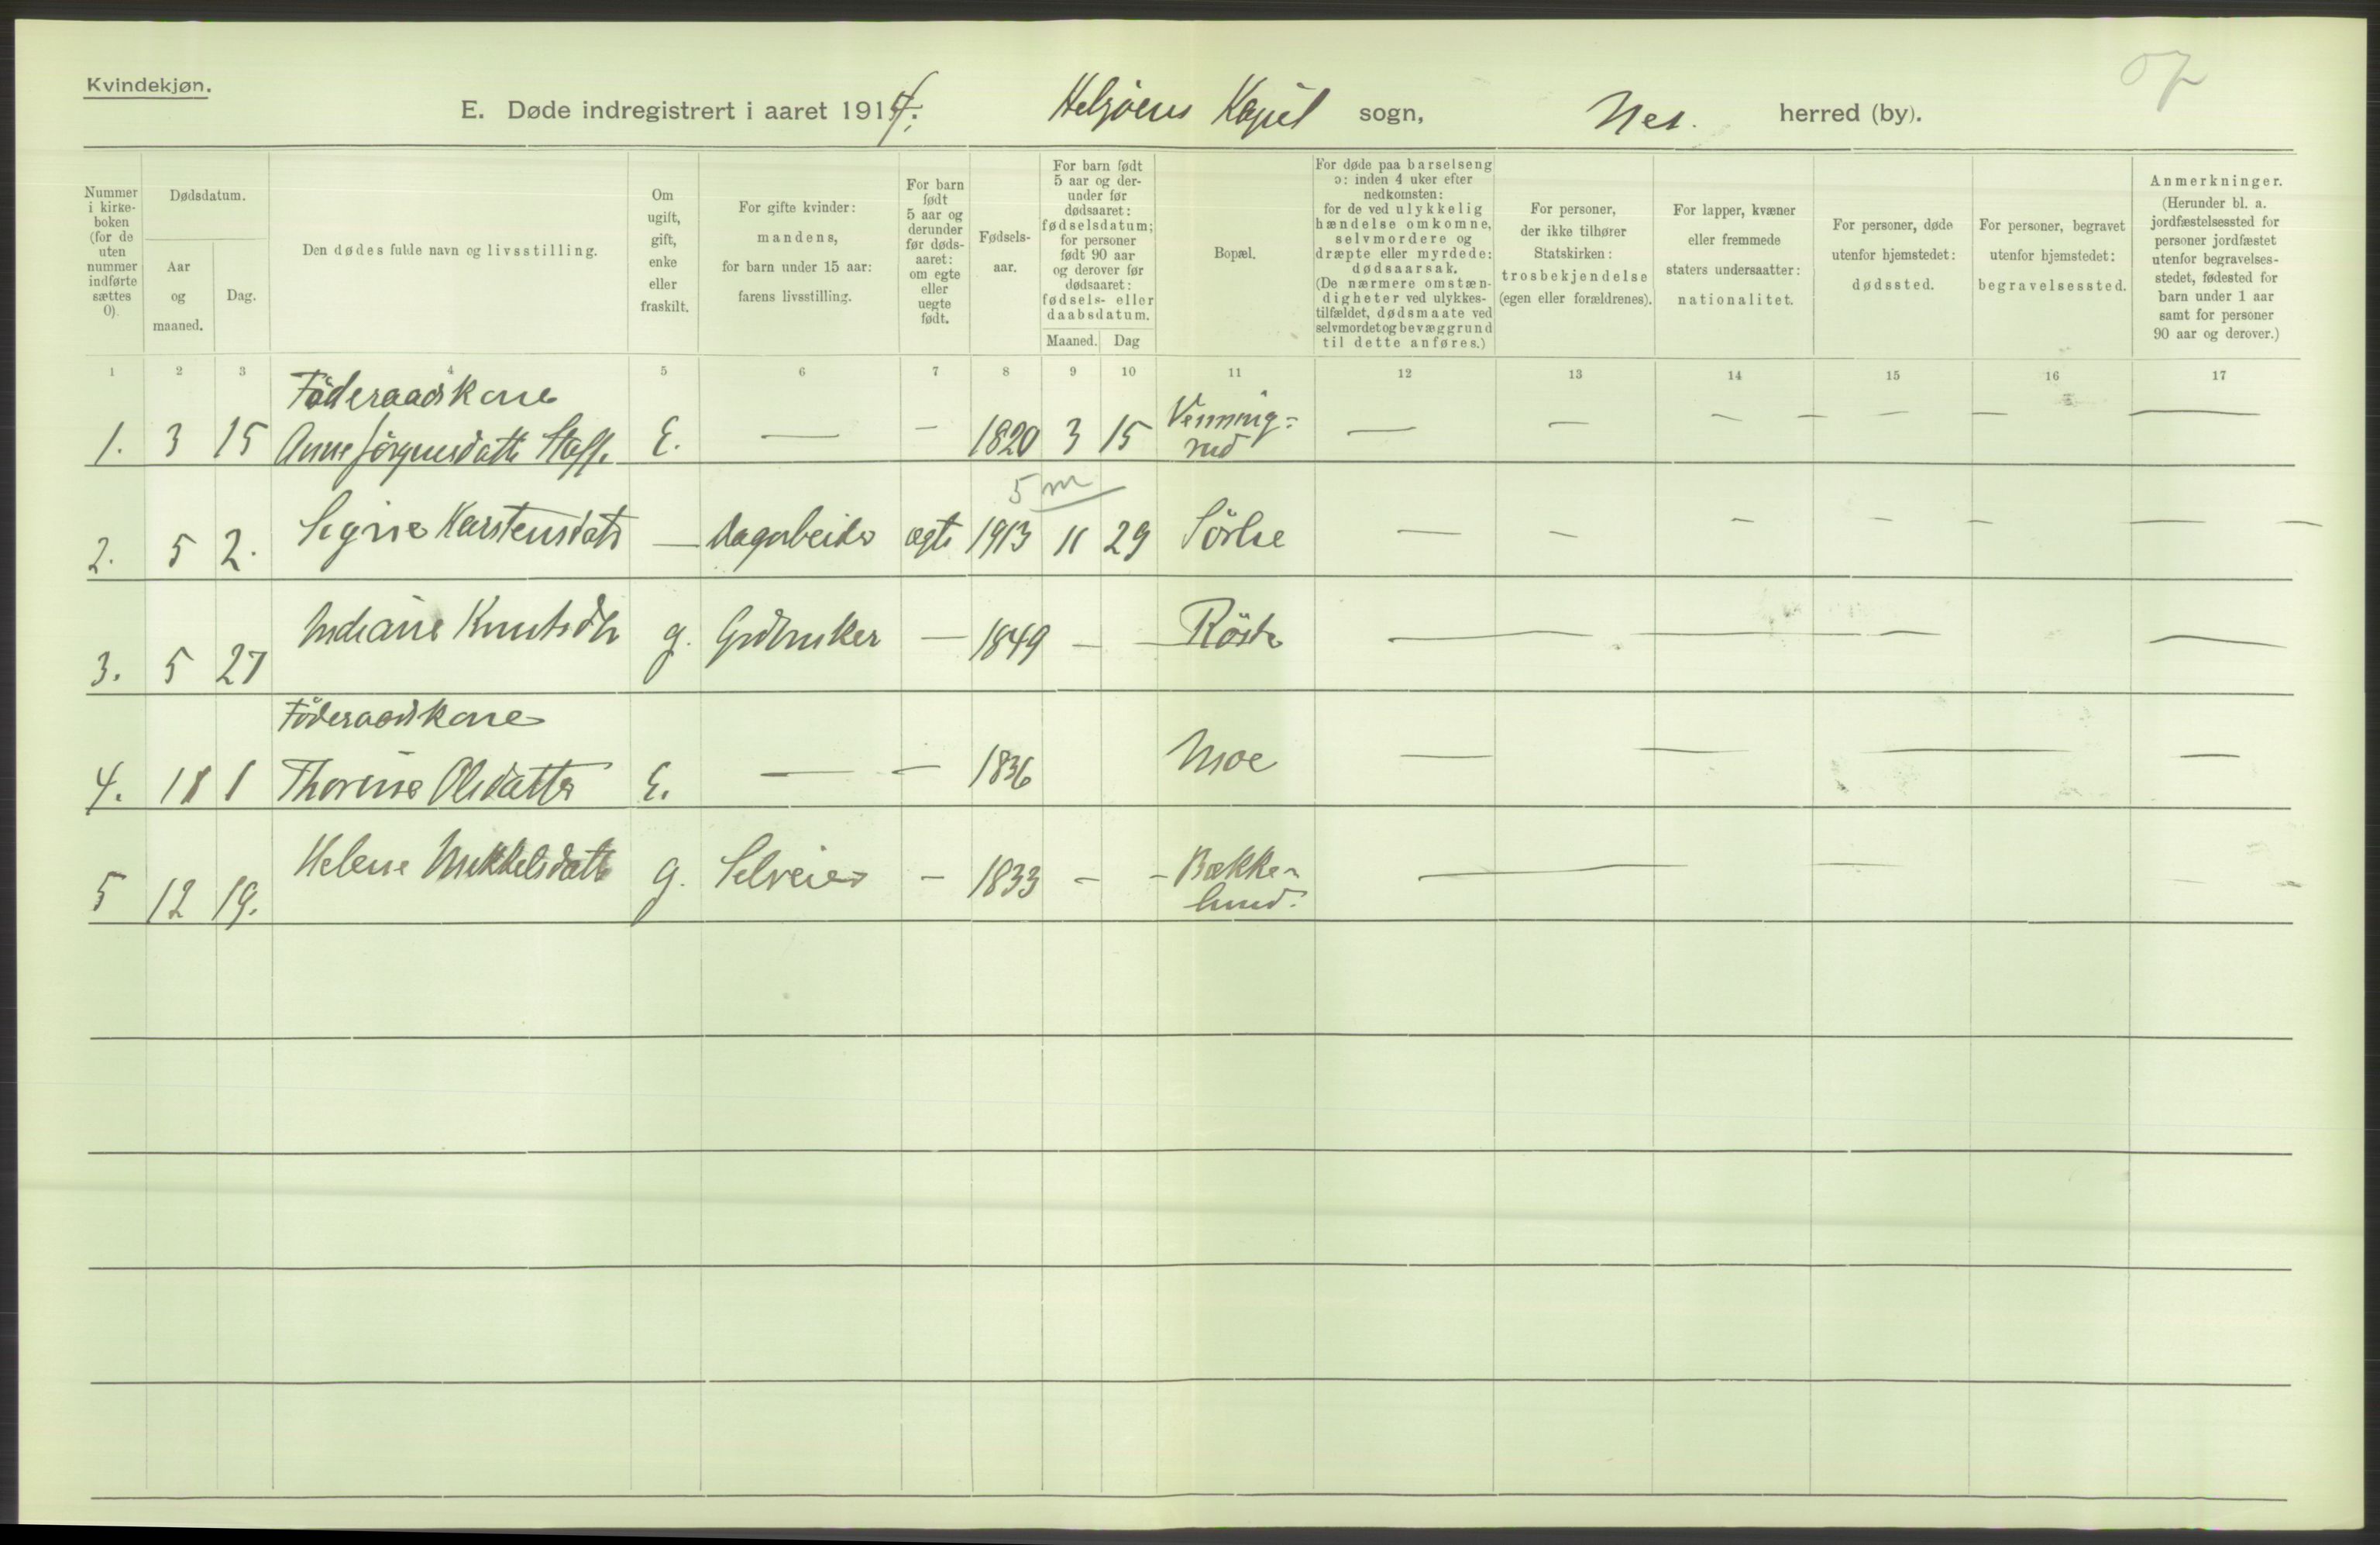 Kvindekjøn.
E. Døde indregistrert i aaret 1914. Helgöens Kapel sogn, Nes. herred (by).
Nummer i kirkeboken (for de uten nummer indførte sættes 0).
Dødsdatum.
Aar og maaned.
Dag.
Den dødes fulde navn og livsstilling.
Om ugift, gift, enke eller fraskilt.
For gifte kvinder: mandens, for barn under 15 aar: farens livsstilling.
For barn født 5 aar og derunder før dødsaaret: om egte eller uegte født.
Fødselsaar.
For barn født 5 aar og derunder før dødsaaret: fødselsdatum; for personer født 90 aar og derover før dødsaaret: fødsels- eller daabsdatum.
Maaned. Dag
Bopæl.
For døde paa barselseng ɔ: inden 4 uker efter nedkomsten: for de ved ulykkelig hændelse omkomne, selvmordere og dræpte eller myrdede: dødsaarsak. (De nærmere omstændigheter ved ulykkestilfældet, dødsmaate ved selvmordet og bevæggrund til dette anføres.)
For personer, der ikke tilhører Statskirken: trosbekjendelse (egen eller forældrenes).
For lapper, kvæner eller fremmede staters undersaatter: nationalitet.
For personer, døde utenfor hjemstedet: dødssted.
For personer, begravet utenfor hjemstedet: begravelsessted.
Anmerkninger. (Herunder bl. a. jordfæstelsessted for personer jordfæstet utenfor begravelsesstedet, fødested for barn under 1 aar samt for personer 90 aar og derover.)
1 2 3 4 5 6 7 8 9 10 11 12 13 14 15 16 17
Föderaadskone
1. 3 15 Anne Jörgensdatter E. — — 1820 3 15 — — — — — —
5 m
2. 5 2. Signe Karstensdatr — Dagarbeider ægte 1913 11 29 Sörlie — — — — — — —
3. 5 27 Knutsdtr g. Grdbruker — 1849 — — Röste — — — —
Föderaadskone
4. 11 1 Thorine Olsdatter E. — — 1836 Moe — — — —
5 12 19. Helene Mikkelsdatter g. Selveier — 1833 — — Bække-
lund. — — —